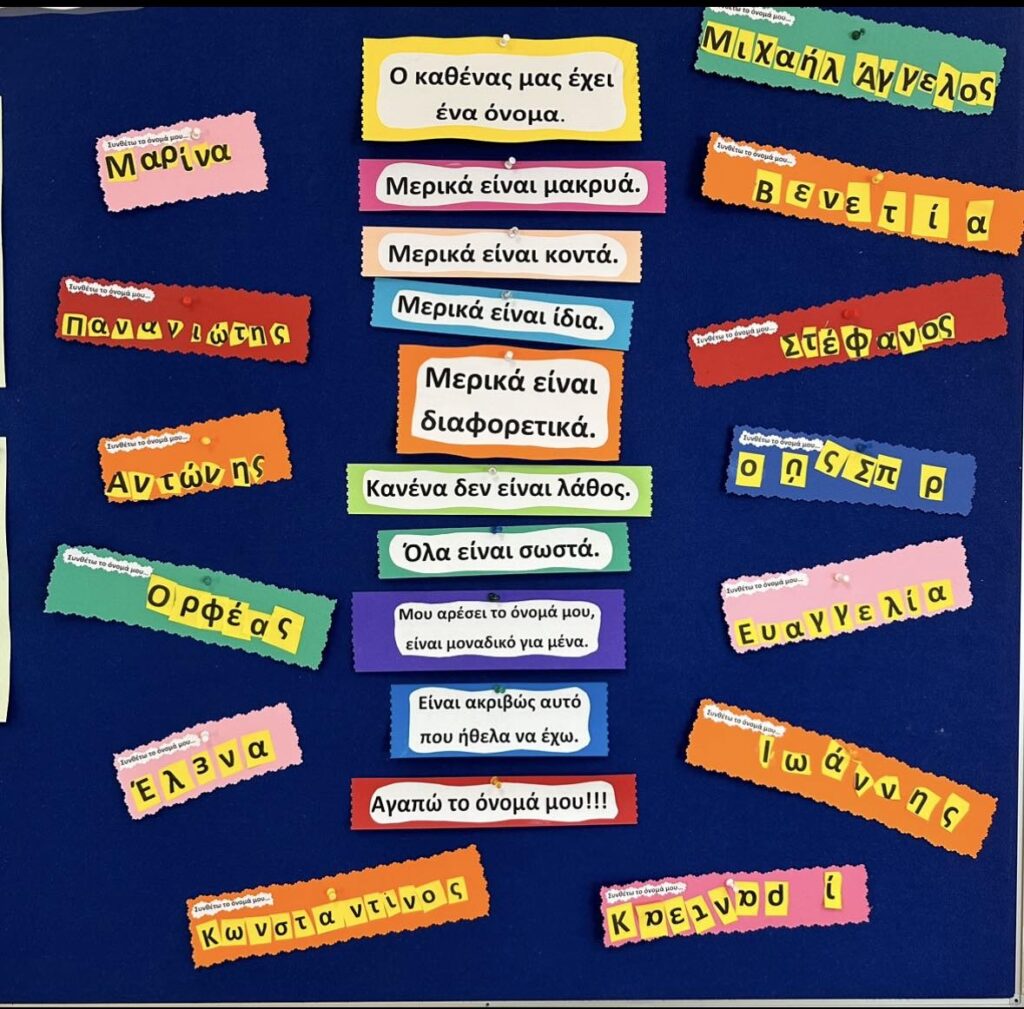 Συνθέτω το όνομά μου...
Μαρίνα
Συνθέτω το όνομά μου...
Παναγιώτης
Συνθέτω το όνομά μου...
Αντώνης
Συνθέτω το όνομά μου...
Ορφέας
Συνθέτω το όνομά μου...
Έλενα
Συνθέτω το όνομά μου...
Κωνσταντίνος
Ο καθένας μας έχει
ένα όνομα.
Μερικά είναι μακρυά.
Μερικά είναι κοντά.
Μερικά είναι ίδια.
Μερικά είναι
διαφορετικά.
Κανένα δεν είναι λάθος.
Όλα είναι σωστά.
Μου αρέσει το όνομά μου,
είναι μοναδικό για μένα.
Είναι ακριβώς αυτό
που ήθελα να έχω.
Αγαπώ το όνομά μου!!!
Συνθέτω το όνομά μου...
Μιχαήλ Άγγελος
Συνθέτω το όνομά μου...
Βενετία
Συνθέτω το όνομά μου...
Στέφανος
Συνθέτω το όνομά μου...
ο ύ ςΣπ ρ
Συνθέτω το όνομά μου...
Ευαγγελία
Συνθέτω το όνομά μου...
Ιωάννης
Συνθέτω το όνομά μου...
Καετναρ ί